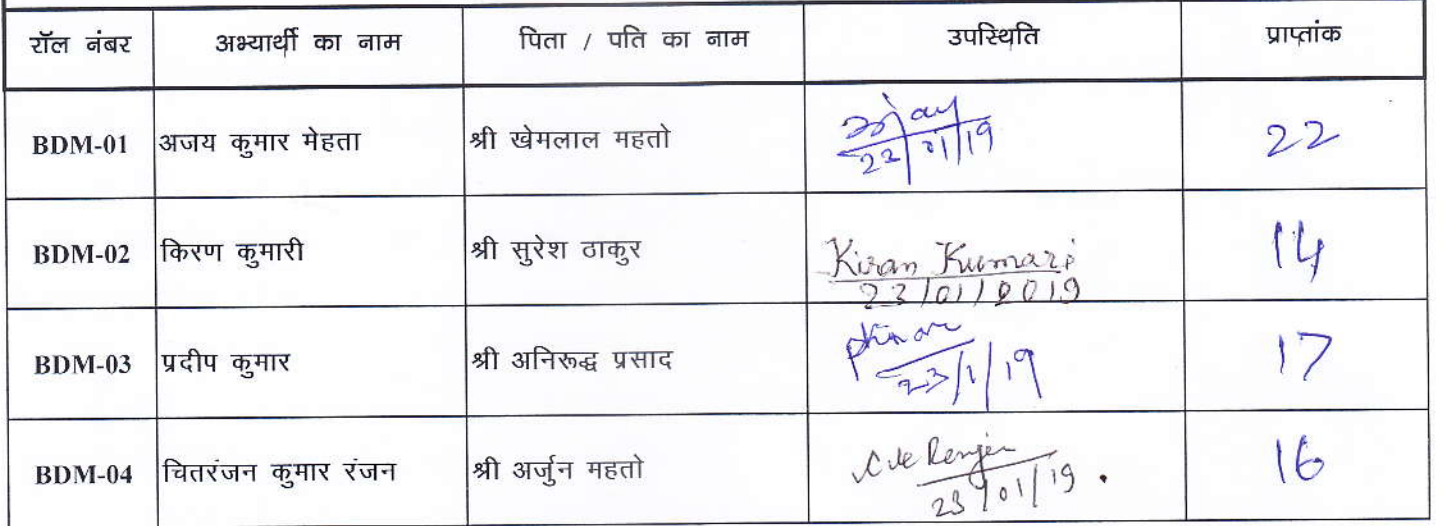 रॉल नंबर अभ्यार्थी का नाम पिता / पति का नाम उपस्थिति प्राप्तांक
BDM-01 अजय कुमार मेहता श्री खेमलाल महतो 22/01/19 22
BDM-02 किरण कुमारी श्री सुरेश ठाकुर Kiran Kumari 14
23/01/2019
BDM-03 प्रदीप कुमार श्री अनिरूद्ध प्रसाद 23/1/19 17
BDM-04 चितरंजन कुमार रंजन श्री अर्जुन महतो 23/01/19 16